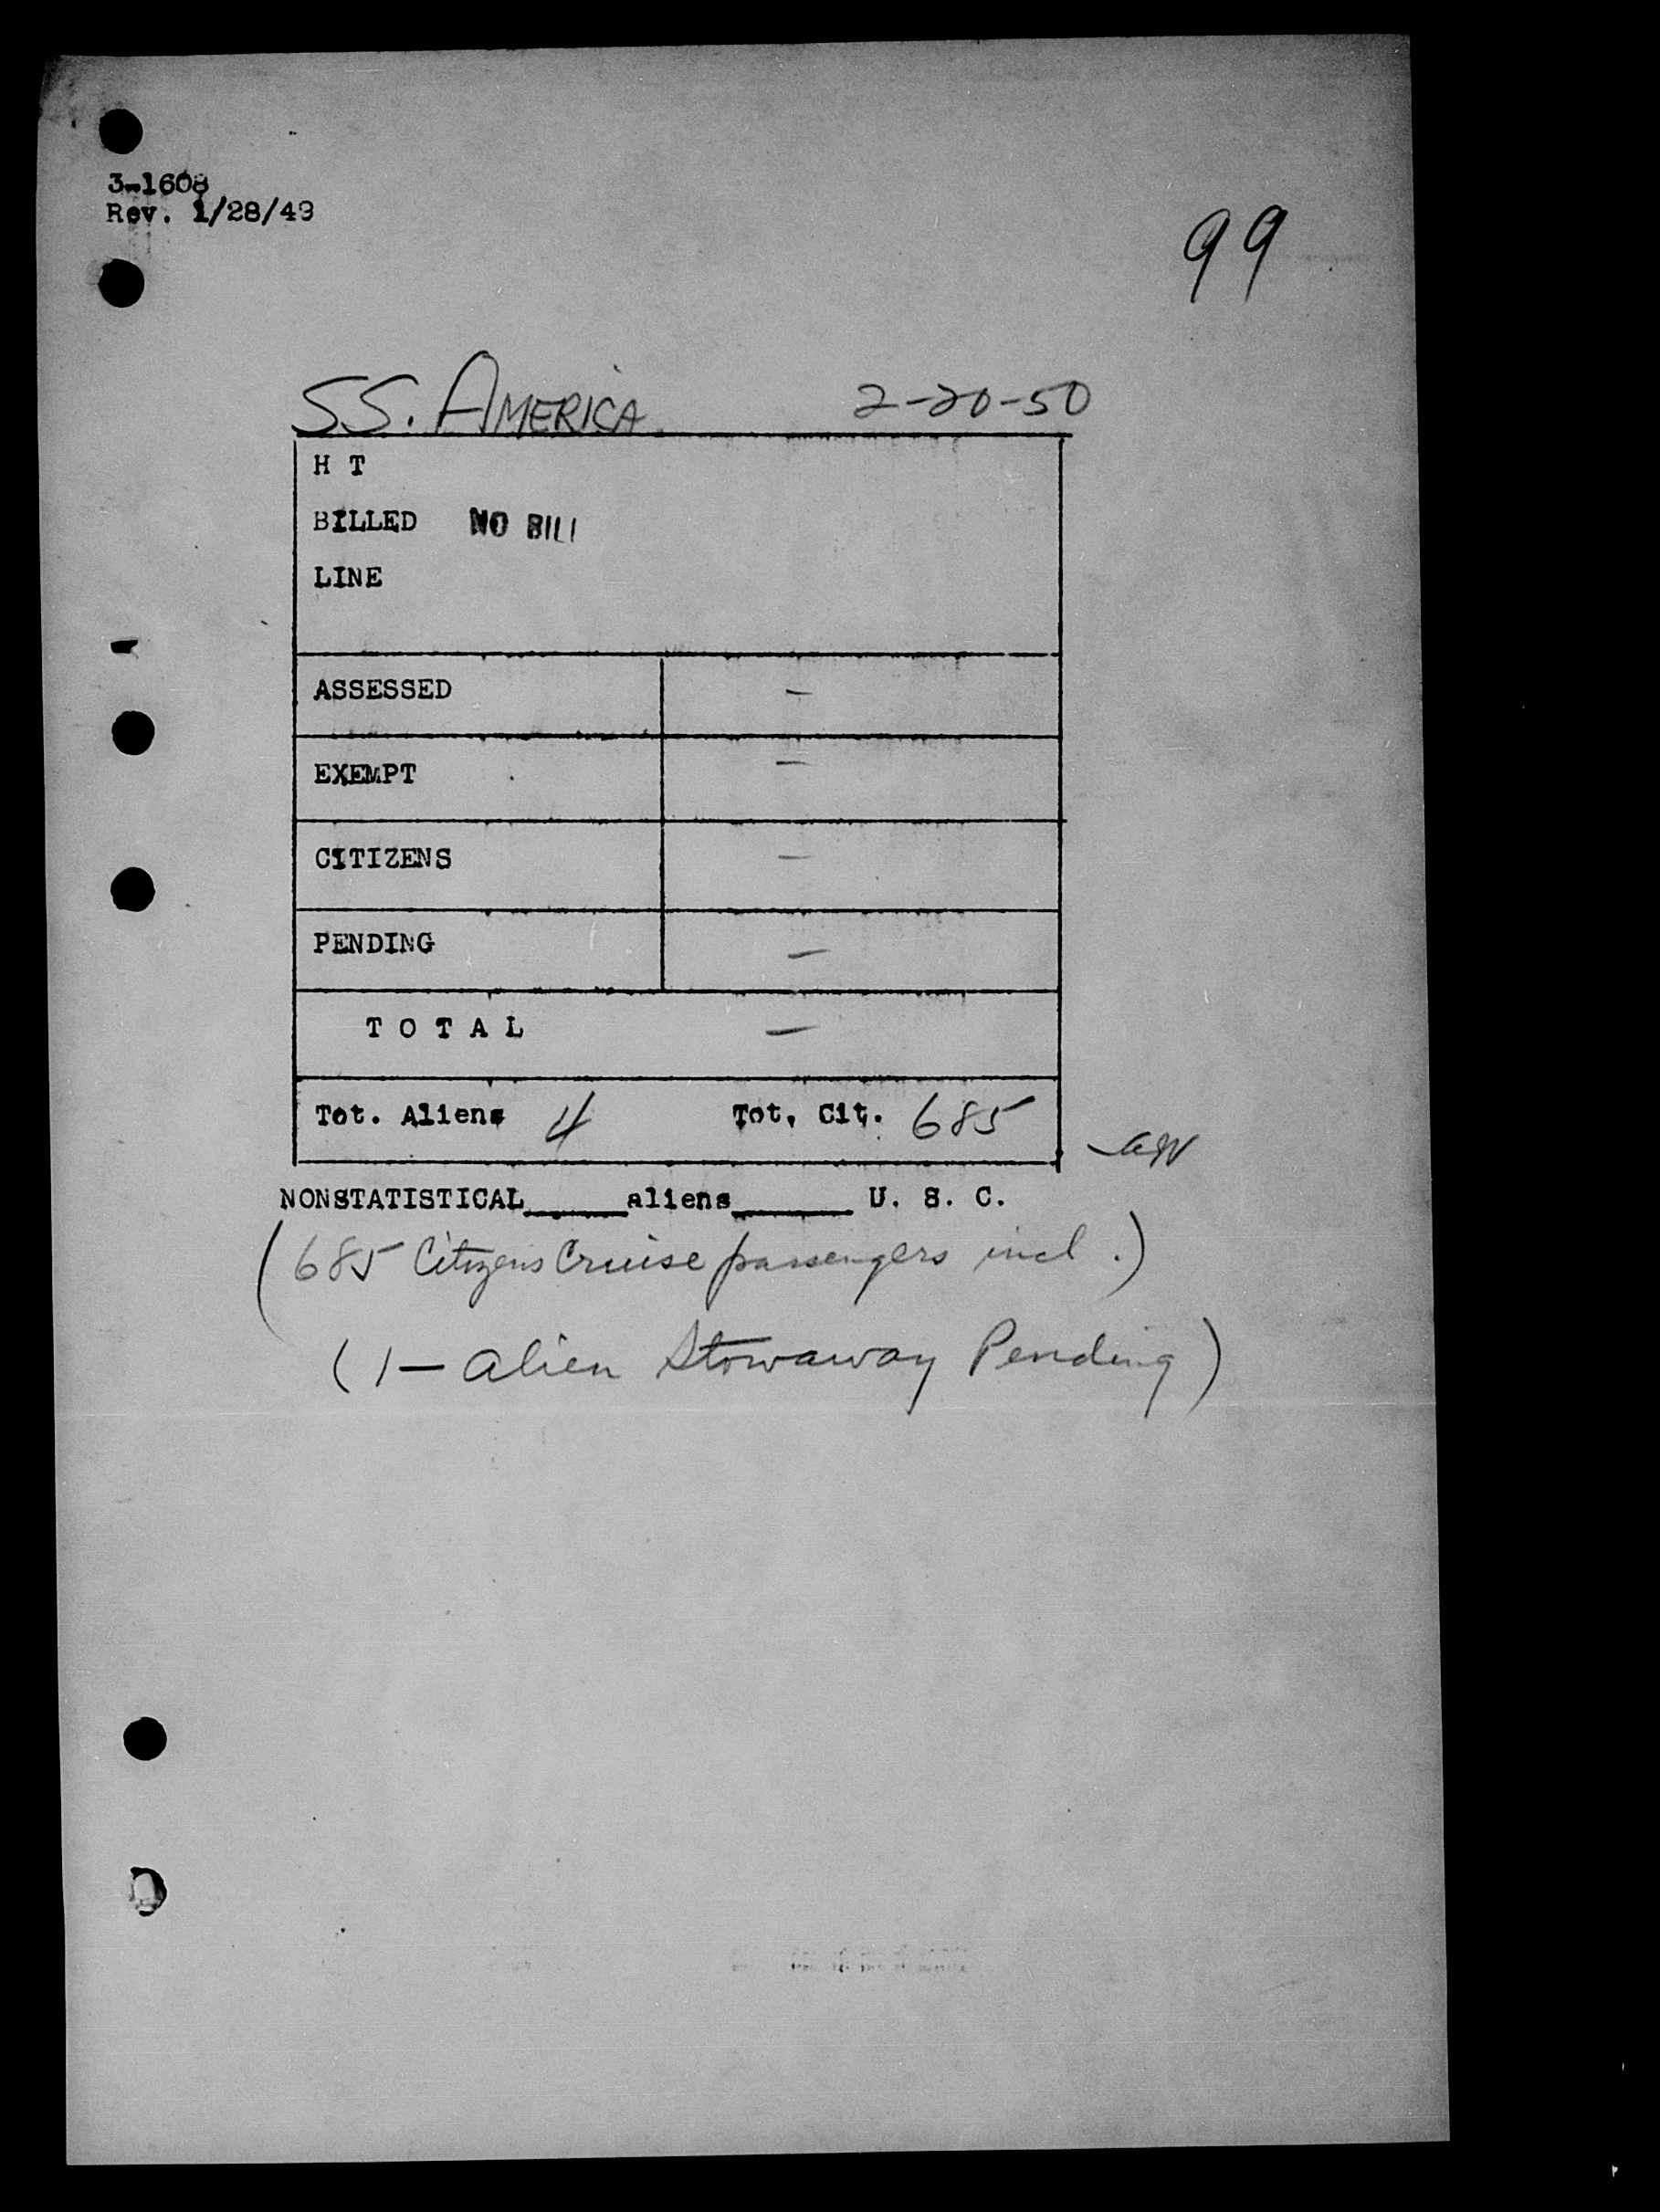 3-1608
Rev. 1/28/49
99
SS. AMERICA 2-20-50
H T
BILLED NO BILL
LINE
ASSESSED –
EXEMPT –
CITIZENS –
PENDING –
T O T A L –
Tot. Aliens 4 Tot. Cit. 685
NONSTATISTICAL_____aliens______ U. S. C.
(685 Citizens Cruise passengers incl.)
(1 – alien Stowaway Pending)